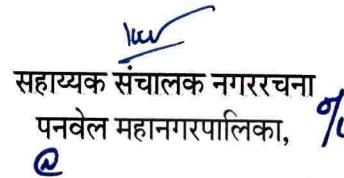 सहाय्यक संचालक नगररचना
पनवेल महानगरपालिका,